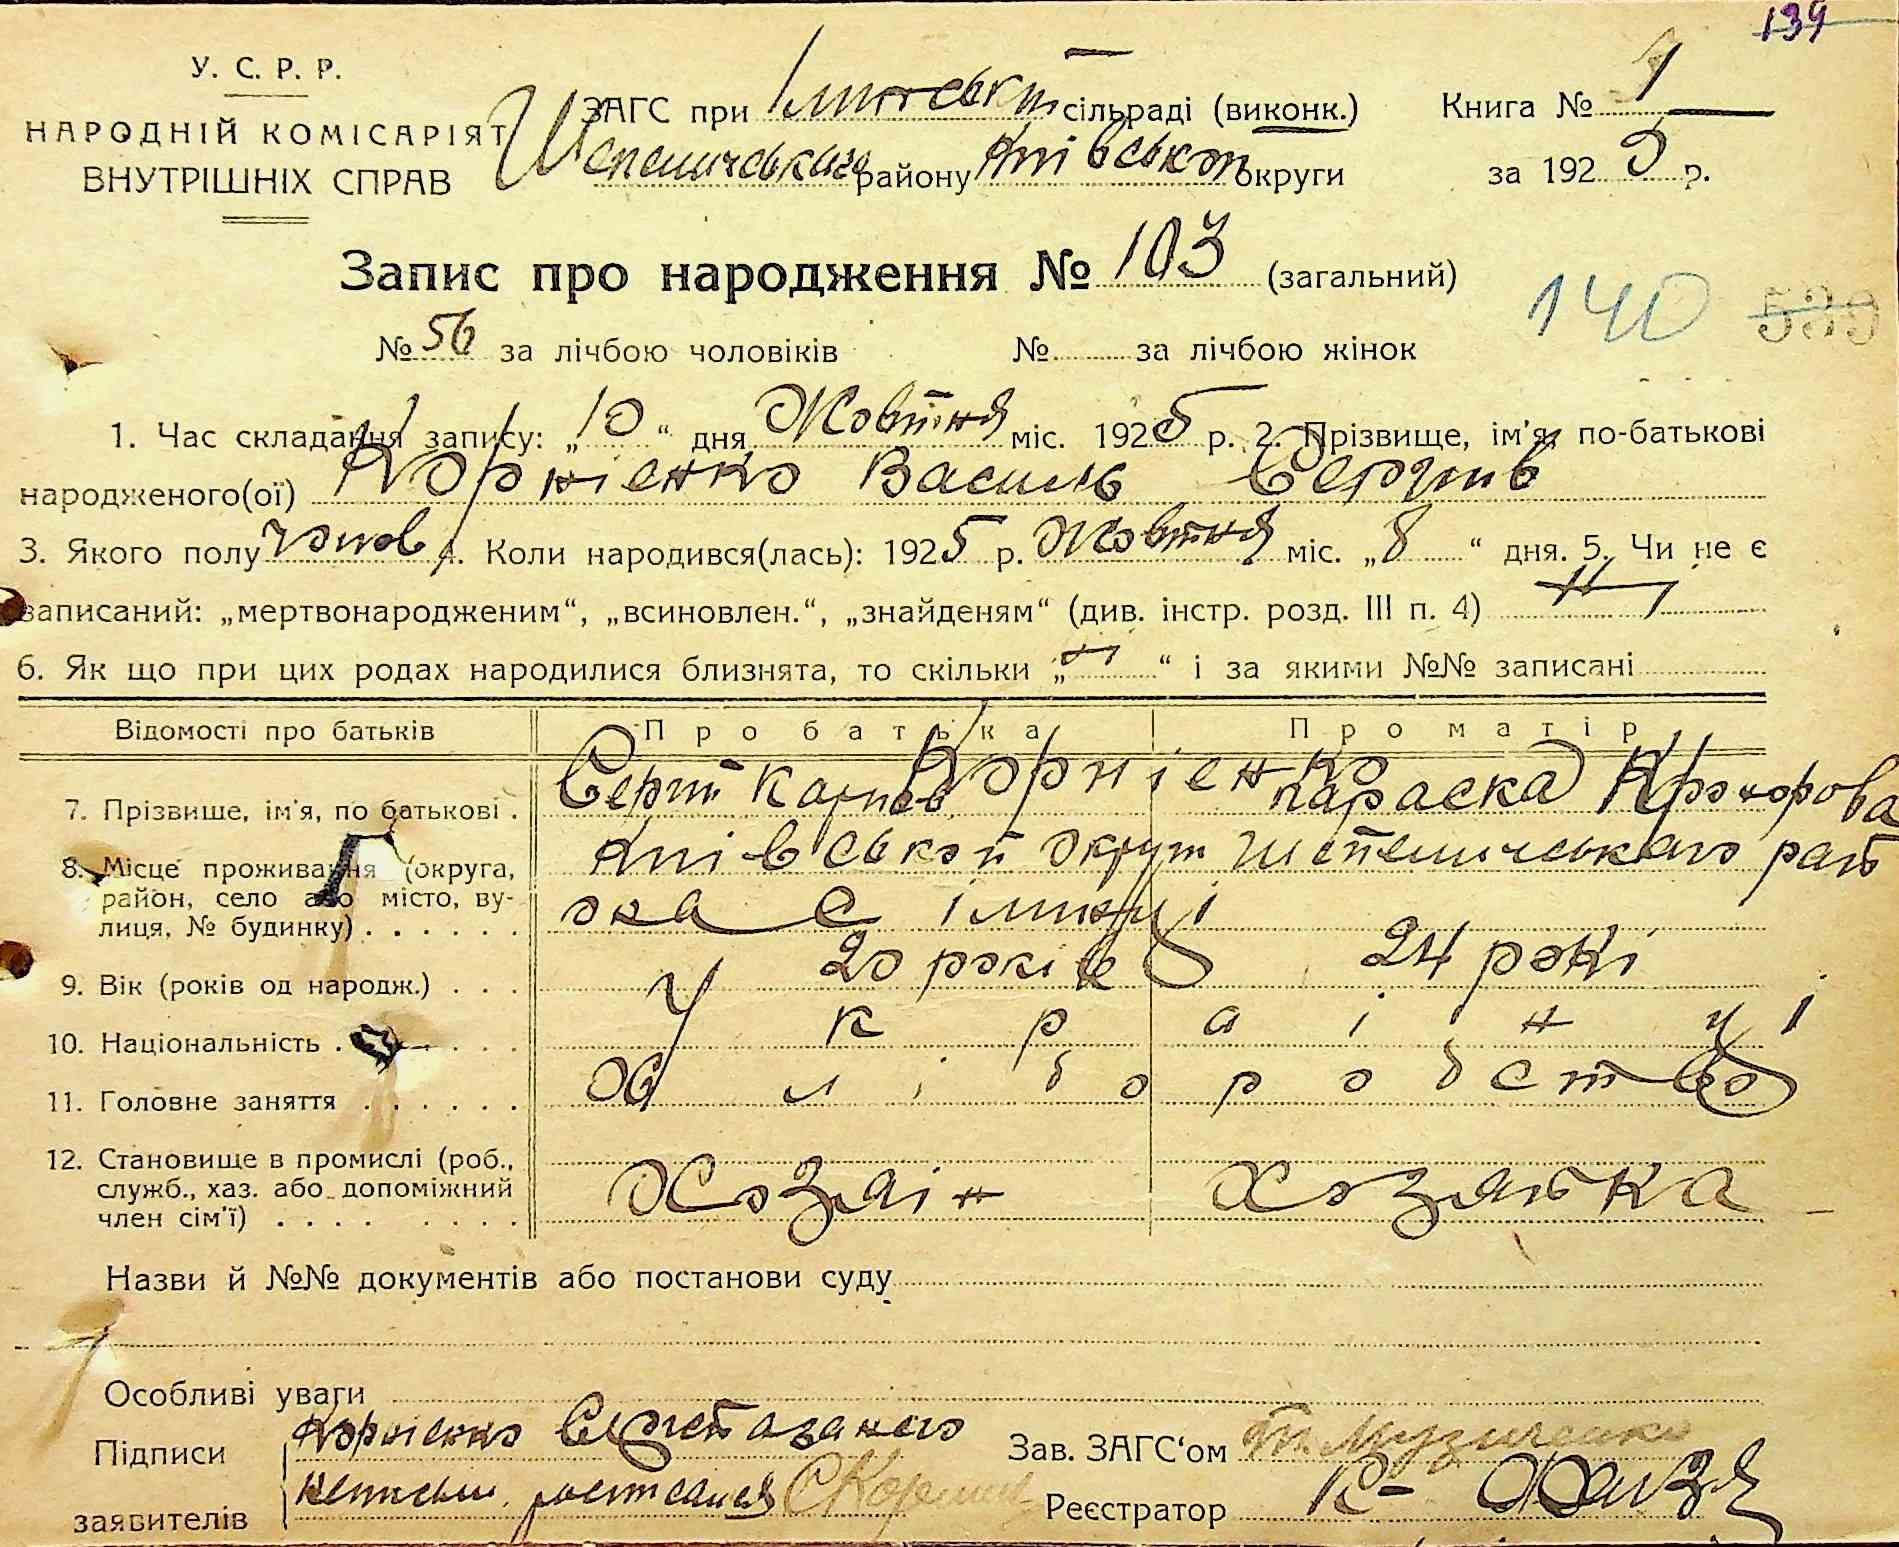 139
У. С. Р. Р.
НАРОДНІЙ КОМІСАРІЯТ
ВНУТРІШНІХ СПРАВ
ЗАГС при сільраді (виконк.)
району Київськоі округи
Книга № 1
за 1925 р.
Запис про народження № 103 (загальний)
140
539
№ 56 за лічбою чоловіків № за лічбою жінок
1. Час складання запису: „10“ дня Жовтня міс. 1925 р. 2. Прізвище, ім'я, по-батькові
народженого(ої) Корнієнко Василь Сергіів
3. Якого полу чолов 4. Коли народився(лась): 1925 р. Жовтня міс. „8“ дня. 5. Чи не є
записаний: „мертвонародженим“, „всиновлен.“, „знайденям“ (див. інстр. розд. III п. 4)
6. Як що при цих родах народилися близнята, то скільки „ “ і за якими №№ записані
Відомості про батьків Про батька Про матір
Корнієнко
7. Прізвише, ім'я, по батькові . Сергій Карпов Параска Прохорова
8. Місце проживання (округа, район, село або місто, вулиця, № будинку) . . . . . . Київськоі округи рай
она с
9. Вік (років од народж.) . . . 20 років 24 рокі
10. Національність . . . . . Украінці
11. Головне заняття . . . . . . Хліборобство
12. Становище в промислі (роб., служб., хаз. або допоміжний член сім'ї) . . . . . . . . Хозяін хозяйка
Назви й №№ документів або постанови суду
Особливі уваги
Підписи заявителів
Корнієнко
Зав. ЗАГС‘ом Музиченко
Реєстратор